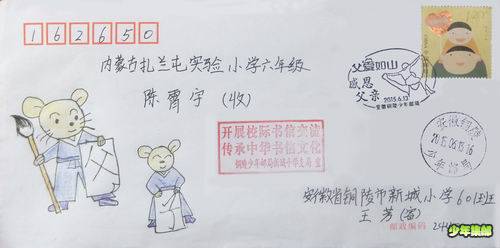 162650
内蒙古扎兰屯实验小学六年级
陈霄宇(收)
父爱如山
感恩
父亲
2015.6.13
开展校际书信交流
传承中华书信文化
父
安徽铜陵
少年邮局
安徽省铜陵市新城小学60班
王芳(寄)
邮政编码
少年集邮